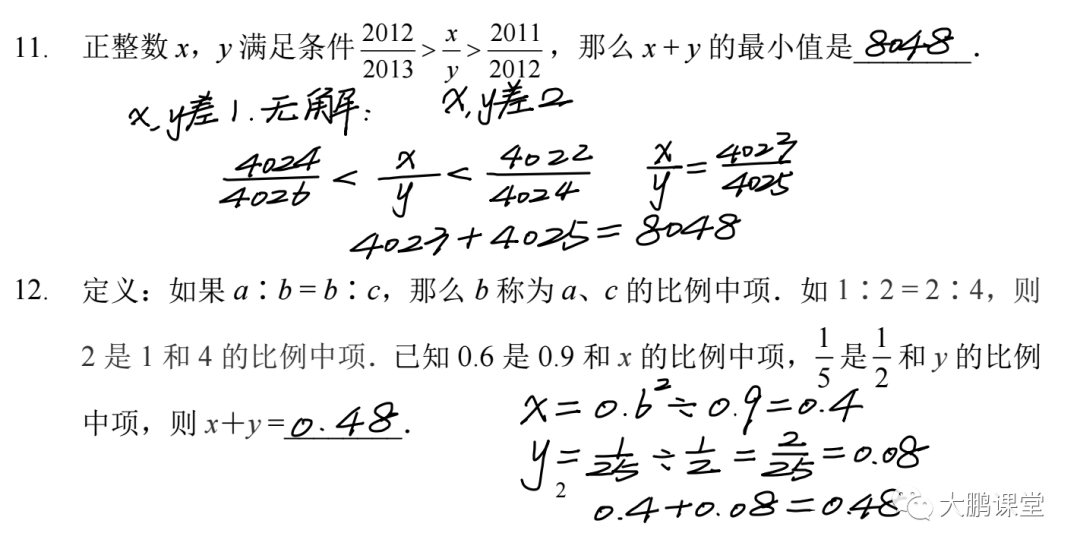 11. 正整数 x，y 满足条件 2012/2013 > x/y > 2011/2012，那么 x + y 的最小值是 8048．
x、y差1.无解： x,y差2
4024/4026 < x/y < 4022/4024 x/y = 4023/4025
4023+4025=8048
12. 定义：如果 a∶b = b∶c，那么 b 称为 a、c 的比例中项．如 1∶2 = 2∶4，则
2 是 1 和 4 的比例中项．已知 0.6 是 0.9 和 x 的比例中项，1/5 是 1/2 和 y 的比例
中项，则 x+y = 0.48．
x=0.6²÷0.9=0.4
y=1/25÷1/2=2/25=0.08
2
0.4+0.08=0.48
大鹏课堂